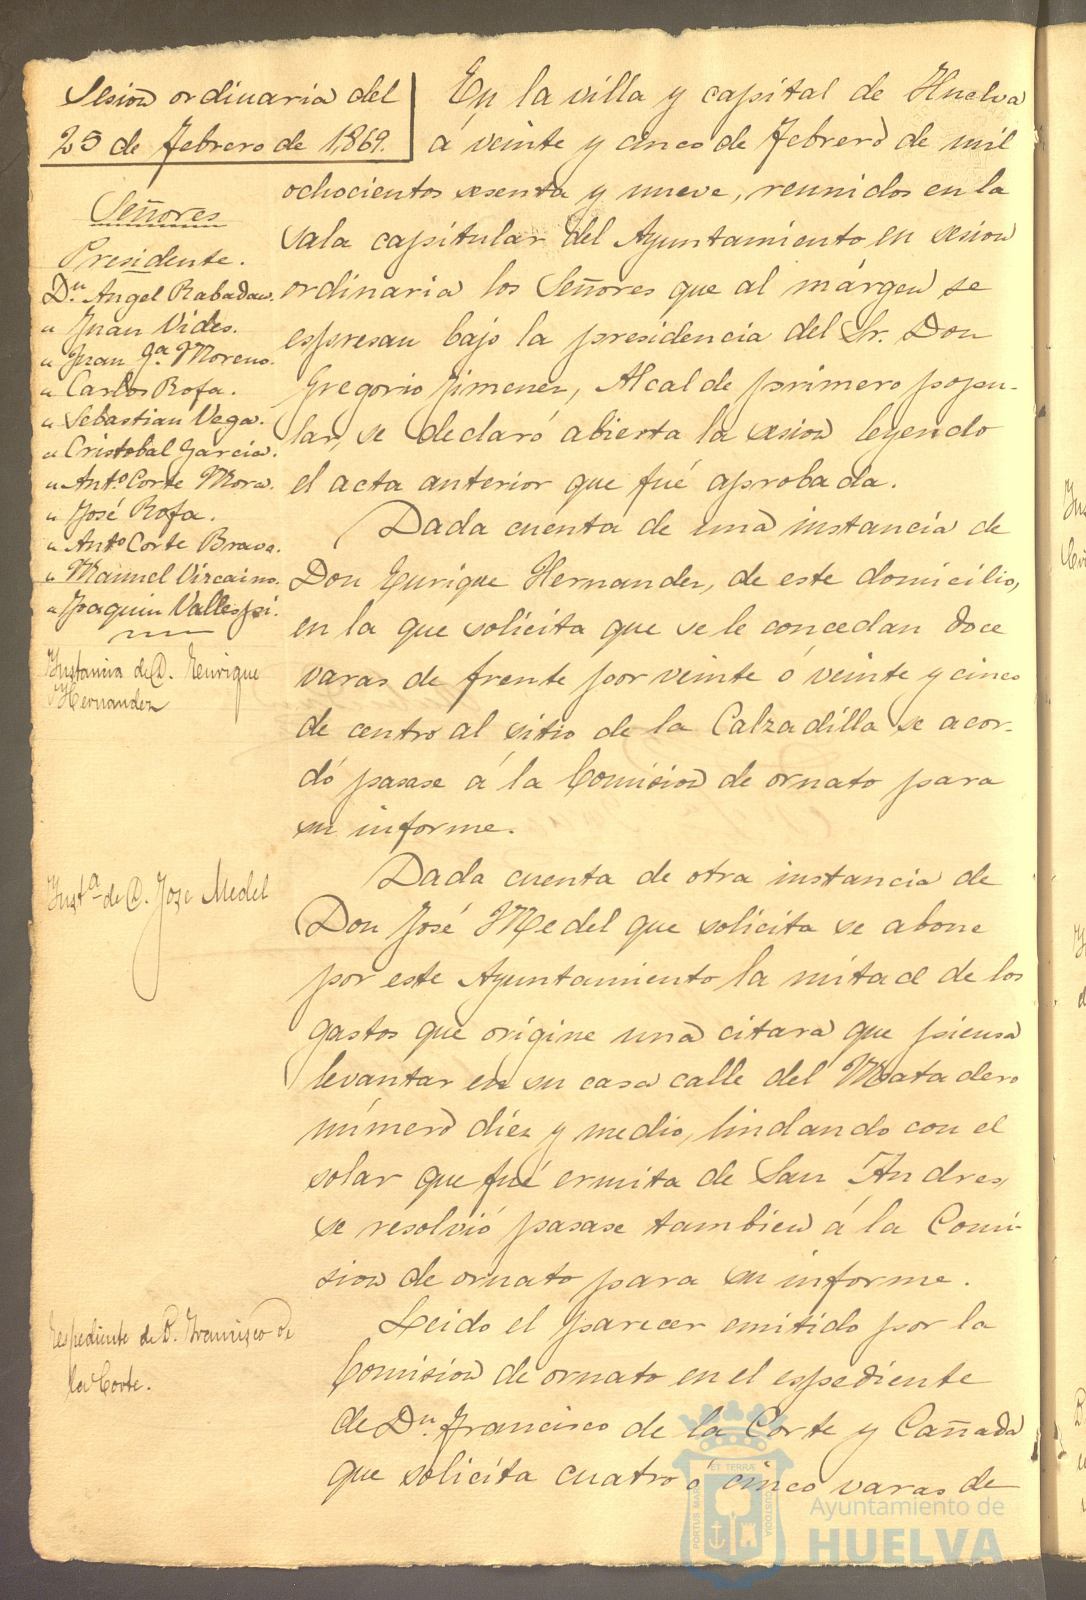 Sesion ordinaria del
25 de Febrero de 1869.
Señores
Presidente.
Dn. Angel Rabadan.
" Juan Vides.
" Juan Ga. Moreno.
" Carlos Rofa.
" Sebastian Vega.
" Cristobal Garcia.
" Anto. Corte Mora.
" José Rofa.
" Anto. Corte Bravo.
" Manuel Vizcaino.
" Joaquin Vallespi.
Instancia de D. Enrique
Hernandez
Insta. de D. Jose Medel
Espediente de D. Francisco de
la Corte.
En la villa y capital de Huelva
á veinte y cinco de Febrero de mil
ochocientos sesenta y nueve, reunidos en la
sala capitular del Ayuntamiento en sesion
ordinaria los Señores que al márgen se
espresan bajo la presidencia del Sr. Don
Gregorio Jimenez, Alcalde primero popu-
lar, se declaró abierta la sesion leyendo
el acta anterior que fué aprobada.
Dada cuenta de una instancia de
Don Enrique Hernandez, de este domicilio,
en la que solicita que se le concedan doce
varas de frente por veinte ó veinte y cinco
de centro al sitio de la Calzadilla se acor-
dó pasase á la Comision de ornato para
su informe.
Dada cuenta de otra instancia de
Don José Medel que solicita se abone
por este Ayuntamiento la mitad de los
gastos que origine una citara que piensa
levantar en su casa calle del Matadero
número diez y medio, lindando con el
solar que fué ermita de San Andres,
se resolvió pasase tambien á la Comi-
sion de ornato para su informe.
Leido el parecer emitido por la
Comision de ornato en el espediente
de Dn. Francisco de la Corte y Cañada
que solicita cuatro ó cinco varas de
PORTUS MARIS
ET TERRÆ
CUSTODIA
Ayuntamiento de
HUELVA